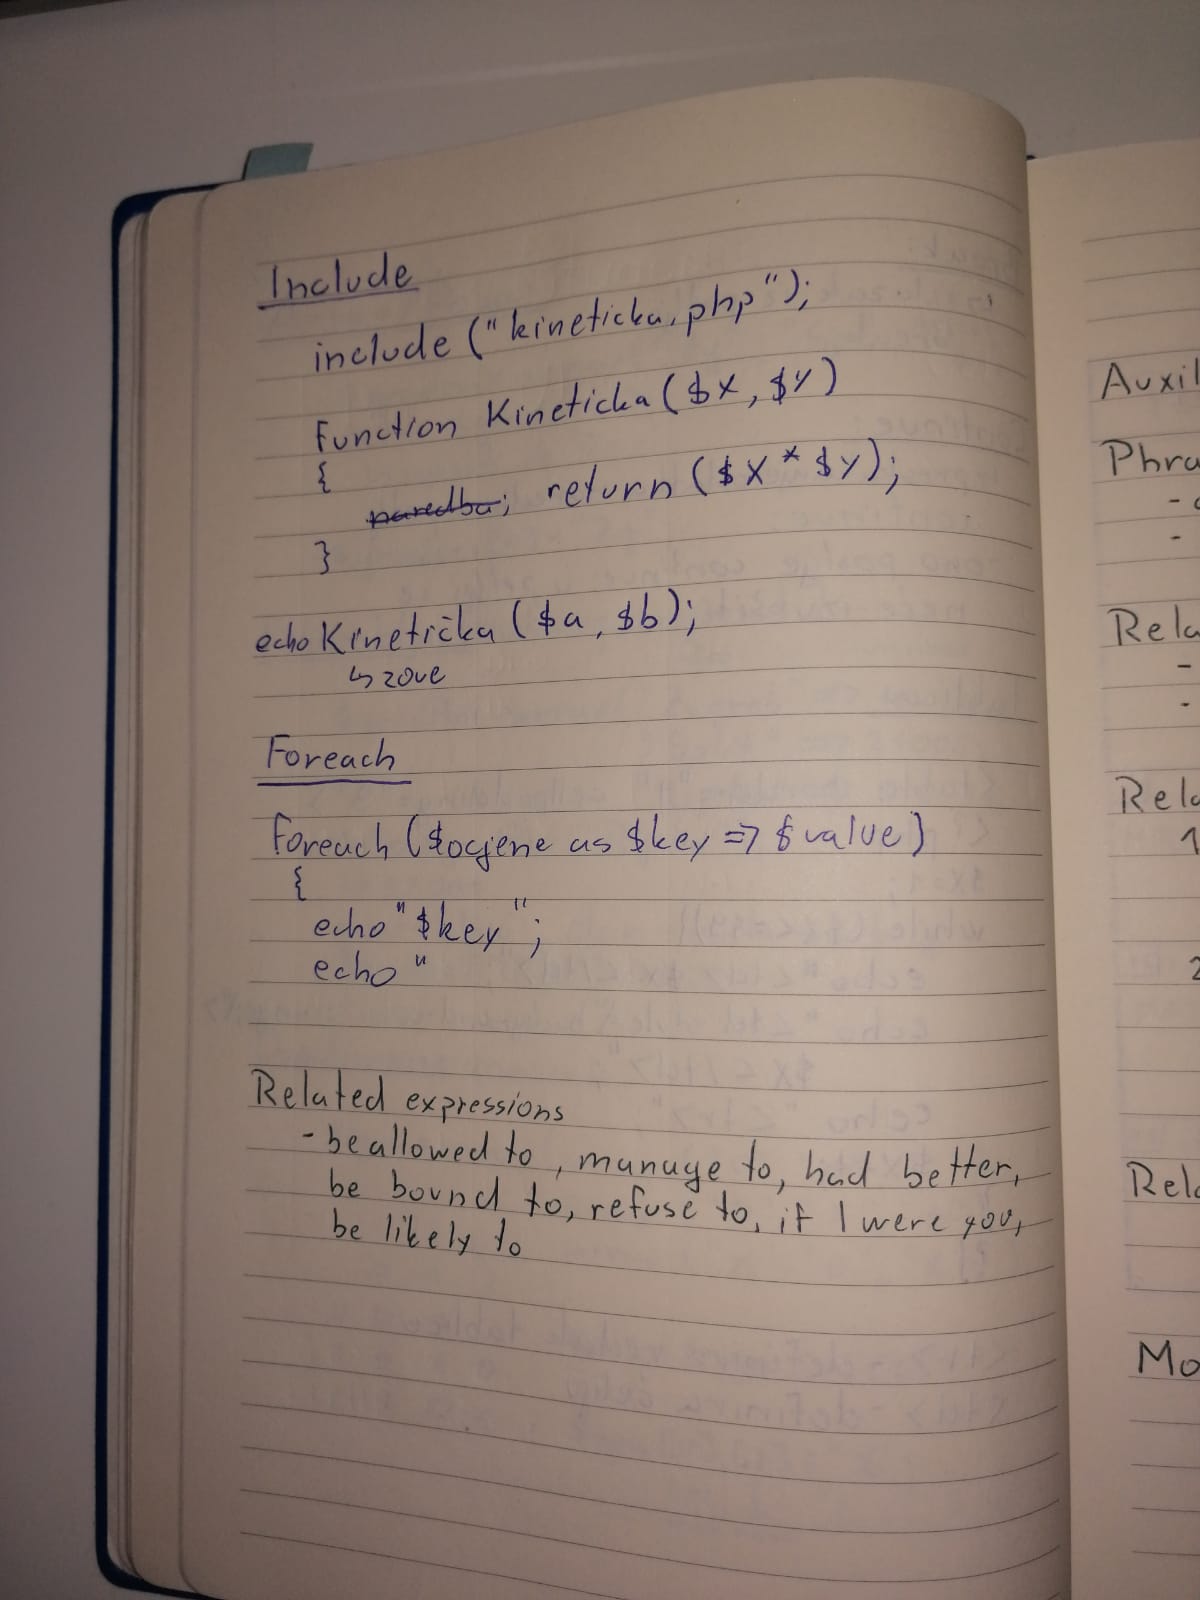 Include
include ("kineticka.php");
function Kineticka ($x, $y)
{
naredba; return ($x * $y);
}
echo Kinetička ($a, $b);
↳ zove
Foreach
foreach ($ocjene as $key => $value)
{
echo "$key";
echo "
Related expressions
- be allowed to, manage to, had better,
be bound to, refuse to, if I were you,
be likely to
Auxil
Phra
-
-
Rela
-
-
Rela
1
2
Rela
Mo